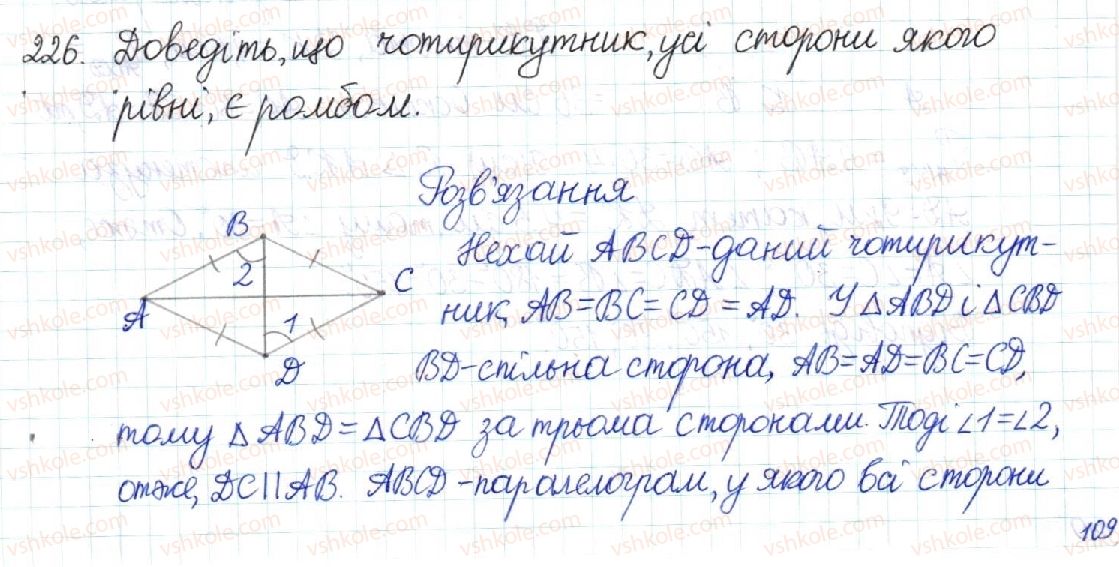 226. Доведіть, що чотирикутник, усі сторони якого
рівні, є ромбом.
Розв'язання
B
2
C
A
1
D
Нехай ABCD-даний чотирикут-
ник, AB=BC=CD=AD. У △ABD і △CBD
BD-спільна сторона, AB=AD=BC=CD,
тому △ABD=△CBD за трьома сторонами. Тоді ∠1=∠2,
отже, DC||AB. ABCD-паралелограм, у якого всі сторони
109